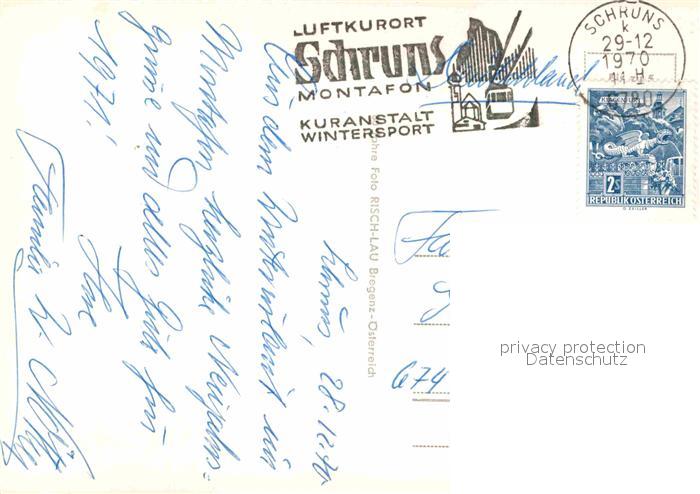 LUFTKURORT
Schruns
MONTAFON
KURANSTALT
WINTERSPORT
SCHRUNS
k
29-12
1970
H
Deutschland
2S
REPUBLIK ÖSTERREICH
Foto RISCH-LAU Bregenz-Österreich
Schruns, 28.12.70
Aus dem Winterurlaub im
Montafon herzliche Neujahrs-
grüsse und alles Gute für
1971!
Ihre
Familie
Fa
674
privacy protection
Datenschutz